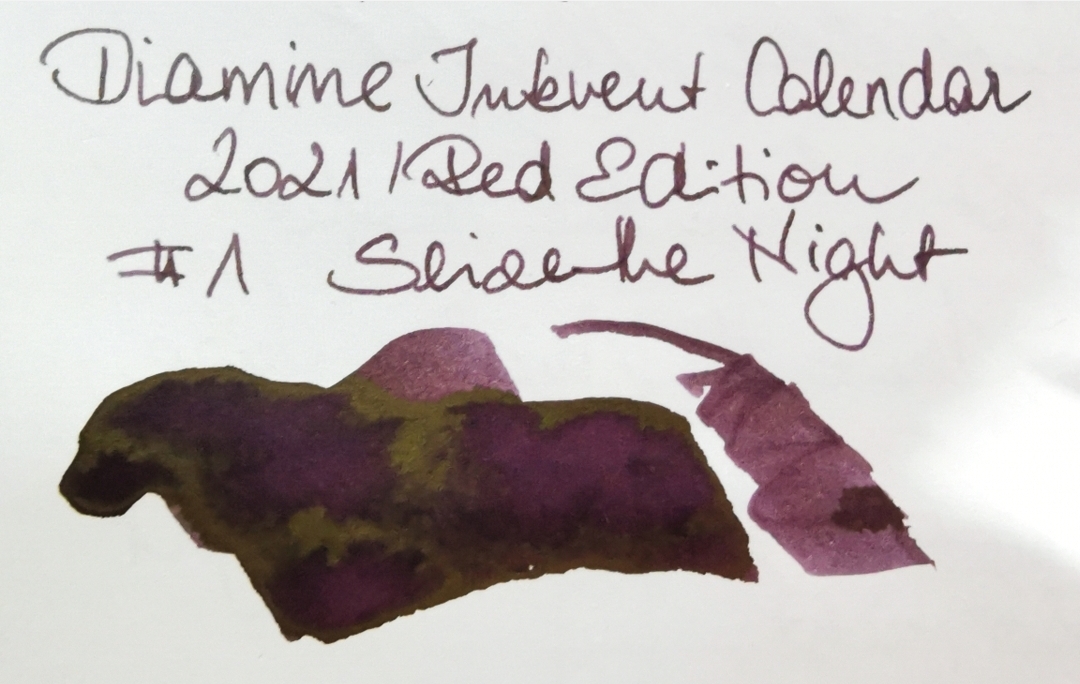 Diamine Inkvent Calendar
2021 / Red Edition
#1 Seize the Night